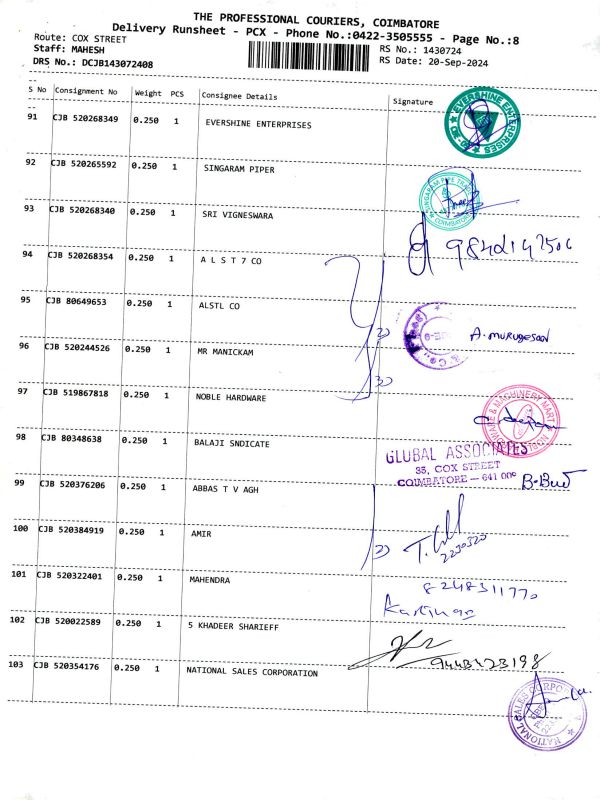 THE PROFESSIONAL COURIERS, COIMBATORE
Delivery Runsheet - PCX - Phone No.:0422-3505555 - Page No.:8
Route: COX STREET
Staff: MAHESH
DRS No.: DCJB143072408
RS No.: 1430724
RS Date: 20-Sep-2024
S No Consignment No Weight PCS Consignee Details Signature
91 CJB 520268349 0.250 1 EVERSHINE ENTERPRISES
EVERSHINE ENTERPRISES
92 CJB 520265592 0.250 1 SINGARAM PIPER
SINGARAM PIPE
COIMBATORE
93 CJB 520268340 0.250 1 SRI VIGNESWARA
94 CJB 520268354 0.250 1 A L S T 7 CO
95 CJB 80649653 0.250 1 ALSTL CO
A. MURUGESAN
96 CJB 520244526 0.250 1 MR MANICKAM
97 CJB 519867818 0.250 1 NOBLE HARDWARE
& MACHINERY MART
98 CJB 80348638 0.250 1 BALAJI SNDICATE
GLOBAL ASSOCIATES
35, COX STREET
COIMBATORE - 641 001
99 CJB 520376206 0.250 1 ABBAS T V AGH
100 CJB 520384919 0.250 1 AMIR
2230520
101 CJB 520322401 0.250 1 MAHENDRA
8248311770
102 CJB 520022589 0.250 1 5 KHADEER SHARIEFF
9443123198
103 CJB 520354176 0.250 1 NATIONAL SALES CORPORATION
NATIONAL SALES CORPOR